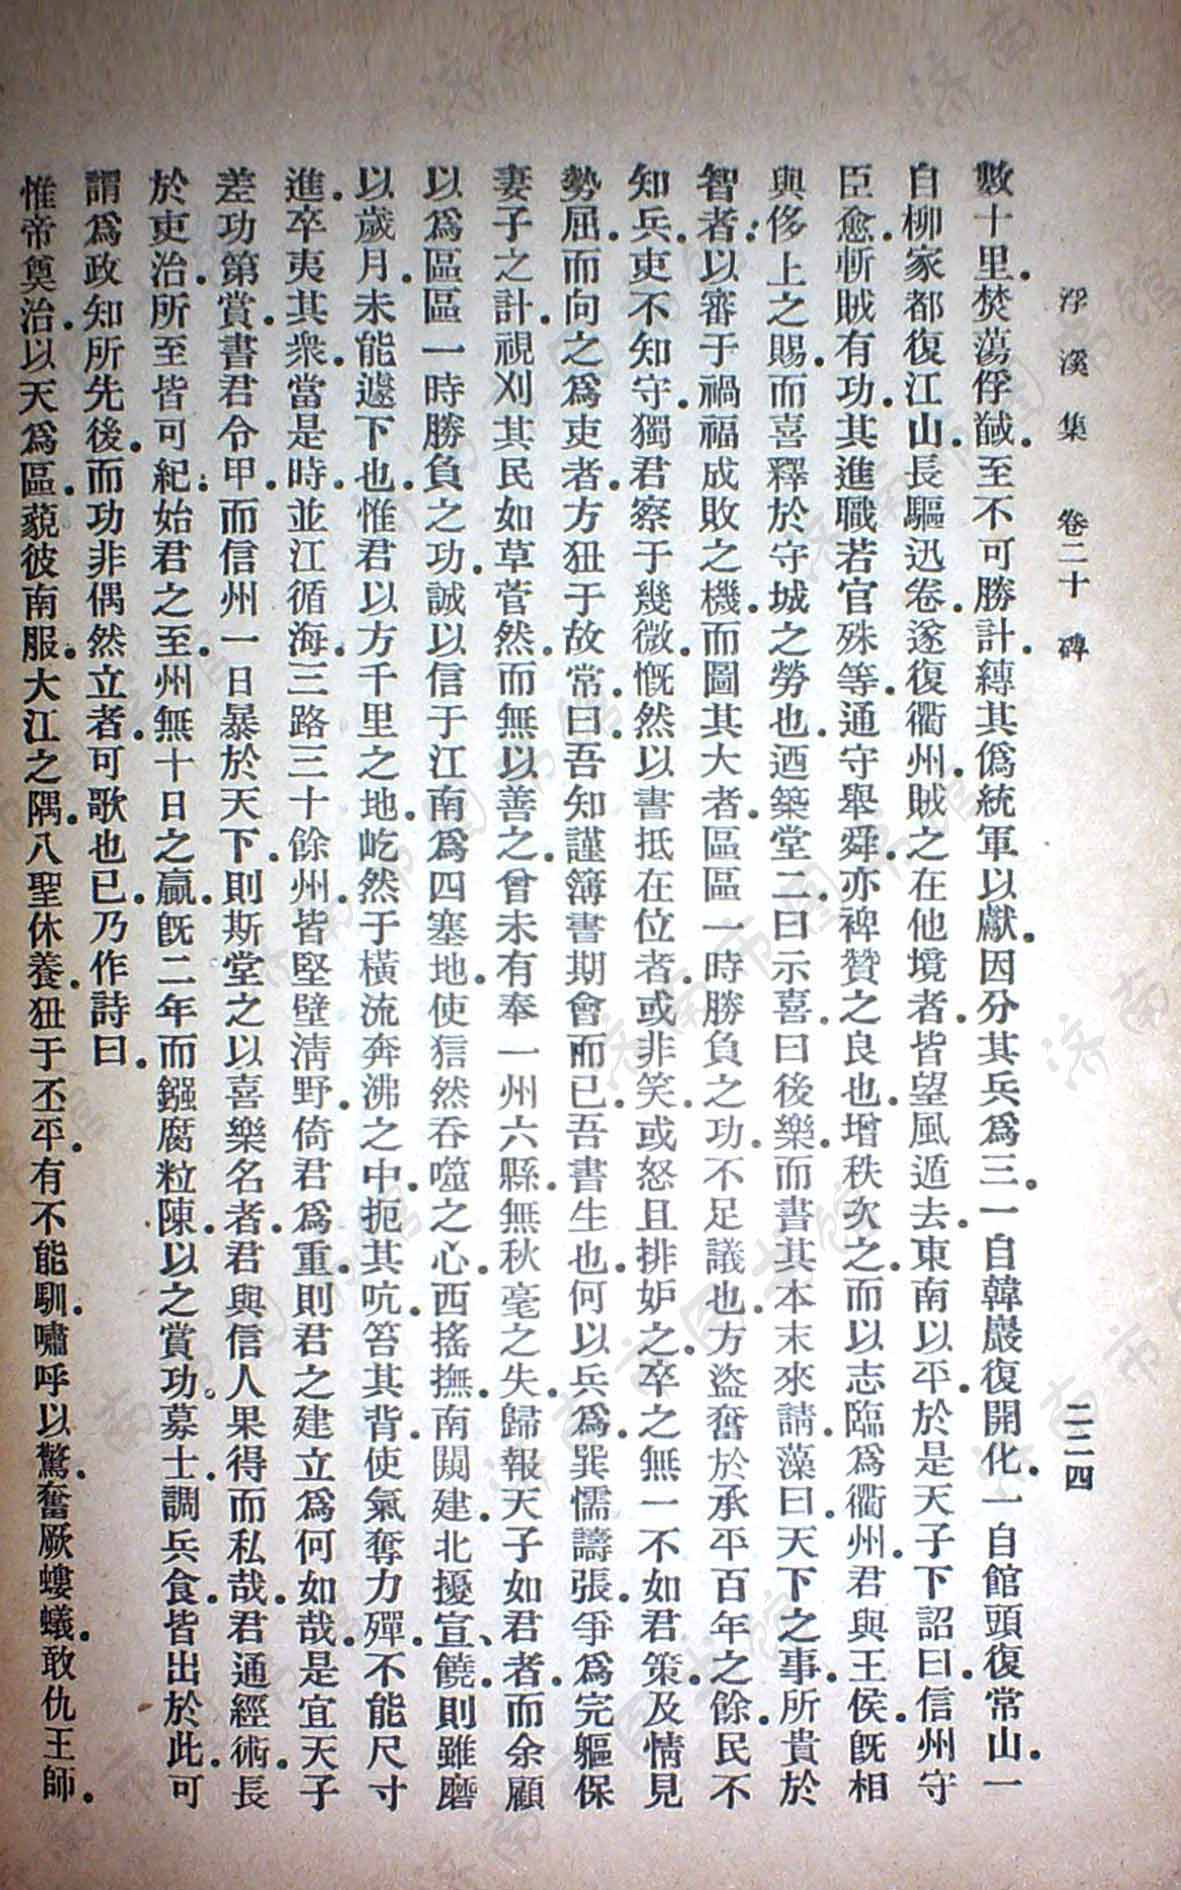 浮溪集 卷二十 碑 二二四
數十里。焚蕩俘馘。至不可勝計。縛其僞統軍以獻。因分其兵爲三。一自韓巖復開化。一自館頭復常山。一
自柳家都復江山。長驅迅卷。遂復衢州。賊之在他境者。皆望風遁去。東南以平。於是天子下詔曰。信州守
臣愈。斬賊有功。其進職若官殊等。通守舉舜。亦裨贊之良也。增秩次之。而以志臨爲衢州。君與王侯。旣相
與侈上之賜。而喜釋於守城之勞也。迺築堂二。曰示喜。曰後樂。而書其本末來請。藻曰。天下之事。所貴於
智者。以審于禍福成敗之機。而圖其大者。區區一時勝負之功。不足議也。方盜奮於承平百年之餘。民不
知兵。吏不知守。獨君察于幾微。慨然以書抵在位者。或非笑。或怒且排妒之。卒之無一不如君策。及情見
勢屈。而向之爲吏者。方狃于故常。曰。吾知謹簿書期會而已。吾書生也。何以兵爲。巽懦譸張。爭爲完軀保
妻子之計。視刈其民如草菅然。而無以善之。曾未有奉一州六縣。無秋毫之失。歸報天子如君者。而余顧
以爲區區一時勝負之功。誠以信于江南爲四塞地。使狺然吞噬之心。西搖撫。南闞建。北擾宣、饒。則雖磨
以歲月。未能遽下也。惟君以方千里之地。屹然于橫流奔沸之中。扼其吭。笞其背。使氣奪力殫。不能尺寸
進。卒夷其衆。當是時。並江循海。三路三十餘州。皆堅壁淸野。倚君爲重。則君之建立爲何如哉。是宜天子
差功第賞。書君令甲。而信州一日暴於天下。則斯堂之以喜樂名者。君與信人果得而私哉。君通經術。長
於吏治。所至皆可紀。始君之至。州無十日之贏。旣二年而鏹腐粒陳。以之賞功。募士。調兵食。皆出於此。可
謂爲政知所先後。而功非偶然立者。可歌也已。乃作詩曰。
惟帝奠治。以天爲區。藐彼南服。大江之隅。八聖休養。狃于丕平。有不能馴。嘯呼以驚。奮厥螻蟻。敢仇王師。